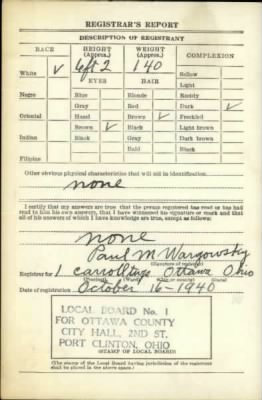 REGISTRAR'S REPORT
DESCRIPTION OF REGISTRANT
RACE HEIGHT (Approx.) WEIGHT (Approx.) COMPLEXION
White ✓ 6 ft 2 140 Sallow
EYES HAIR Light
Negro Blue Blonde Ruddy
Gray Red Dark ✓
Oriental Hazel Brown ✓ Freckled
Brown ✓ Black Light brown
Indian Black Gray Dark brown
Bald Black
Filipino
Other obvious physical characteristics that will aid in identification
none
I certify that my answers are true; that the person registered has read or has had
read to him his own answers; that I have witnessed his signature or mark and that
all of his answers of which I have knowledge are true, except as follows:
none
Paul M. Wargowsky
(Signature of registrar)
Registrar for 1 Carroll twp Ottawa Ohio
(Precinct) (Ward) (City or county) (State)
Date of registration October 16-1940
LOCAL BOARD No. 1
FOR OTTAWA COUNTY
CITY HALL, 2ND ST.
PORT CLINTON, OHIO
(STAMP OF LOCAL BOARD)
(The stamp of the Local Board having jurisdiction of the registrant
shall be placed in the above space.)